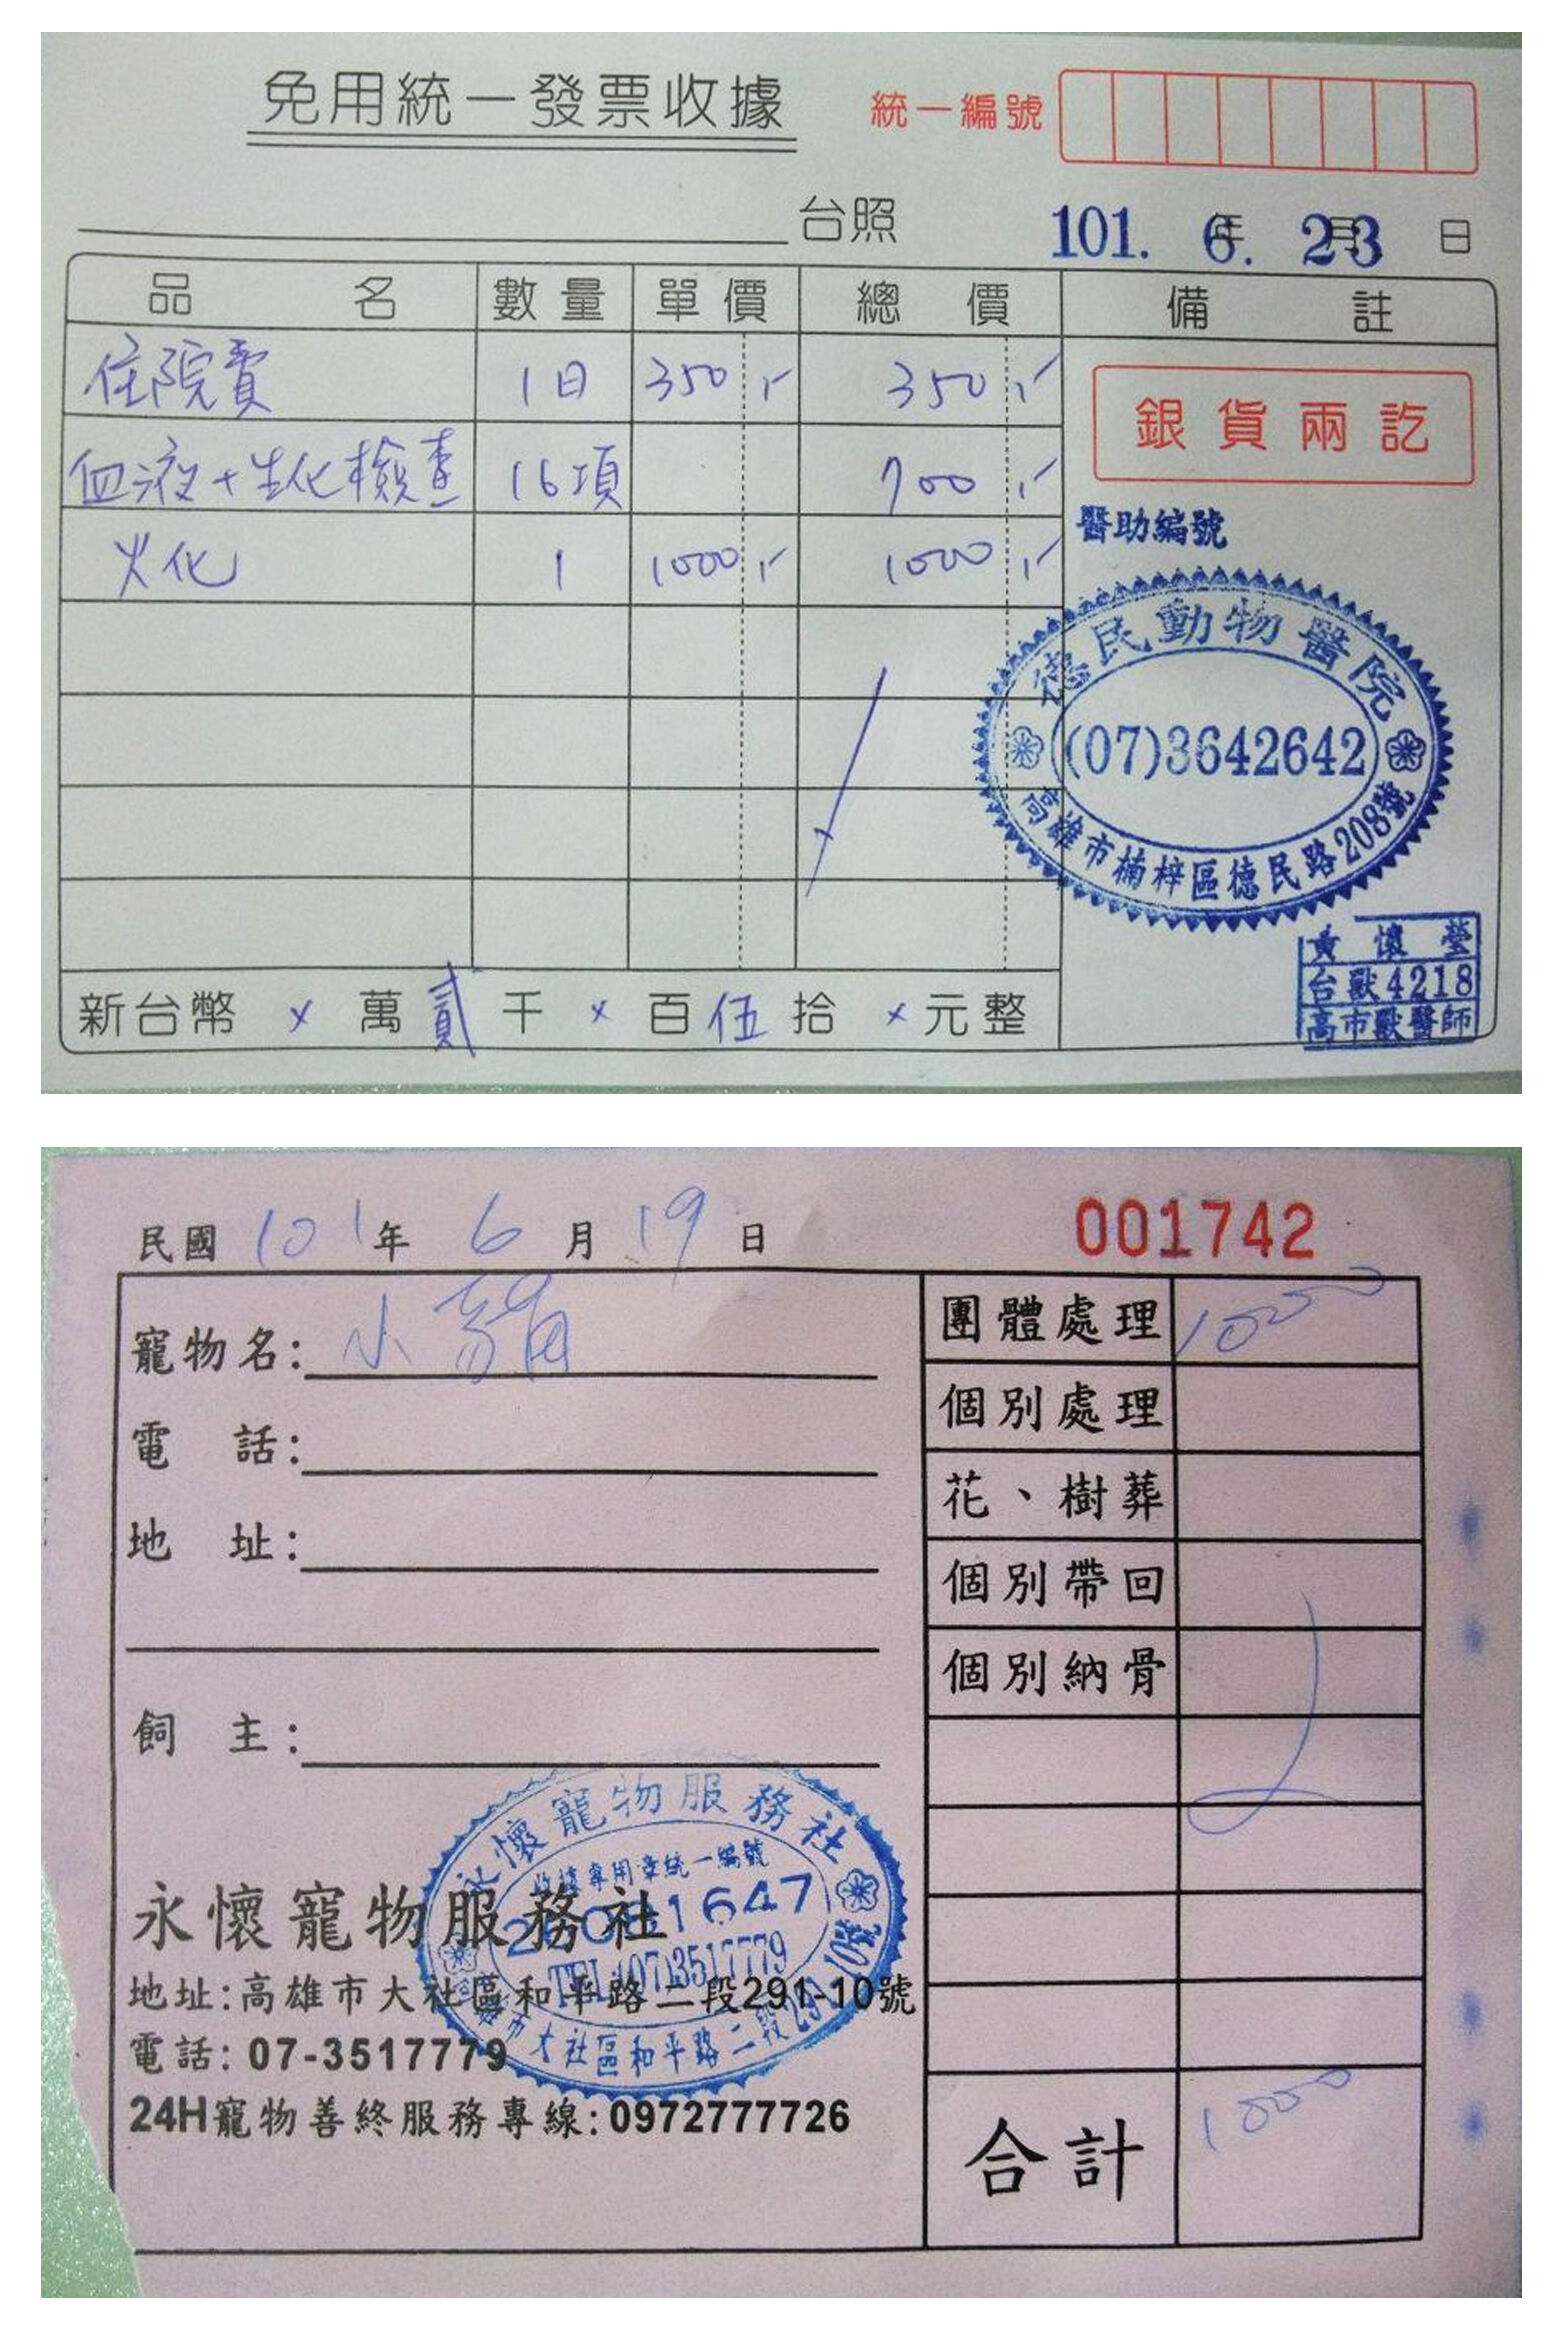 免用統一發票收據
統一編號
台照
101. 6. 23
年 月 日
品名 數量 單價 總價 備註
住院費 1日 350,- 350,-
血液+生化檢查 16項 700,-
火化 1 1000,- 1000,-
銀貨兩訖
醫助編號
德民動物醫院
(07)3642642
高雄市楠梓區德民路208號
黃懷瑩
台獸4218
高市獸醫師
新台幣 × 萬 貳 千 × 百 伍 拾 × 元整
民國 101 年 6 月 19 日
001742
寵物名: 小
電話:
地址:
飼主:
團體處理 1000
個別處理
花、樹葬
個別帶回
個別納骨
合計 1000
永懷寵物服務社
收據專用章統一編號
1647
TEL:(07)3517779
高雄市大社區和平路二段291-10號
永懷寵物服務社
地址:高雄市大社區和平路二段291-10號
電話: 07-3517779
24H寵物善終服務專線:0972777726